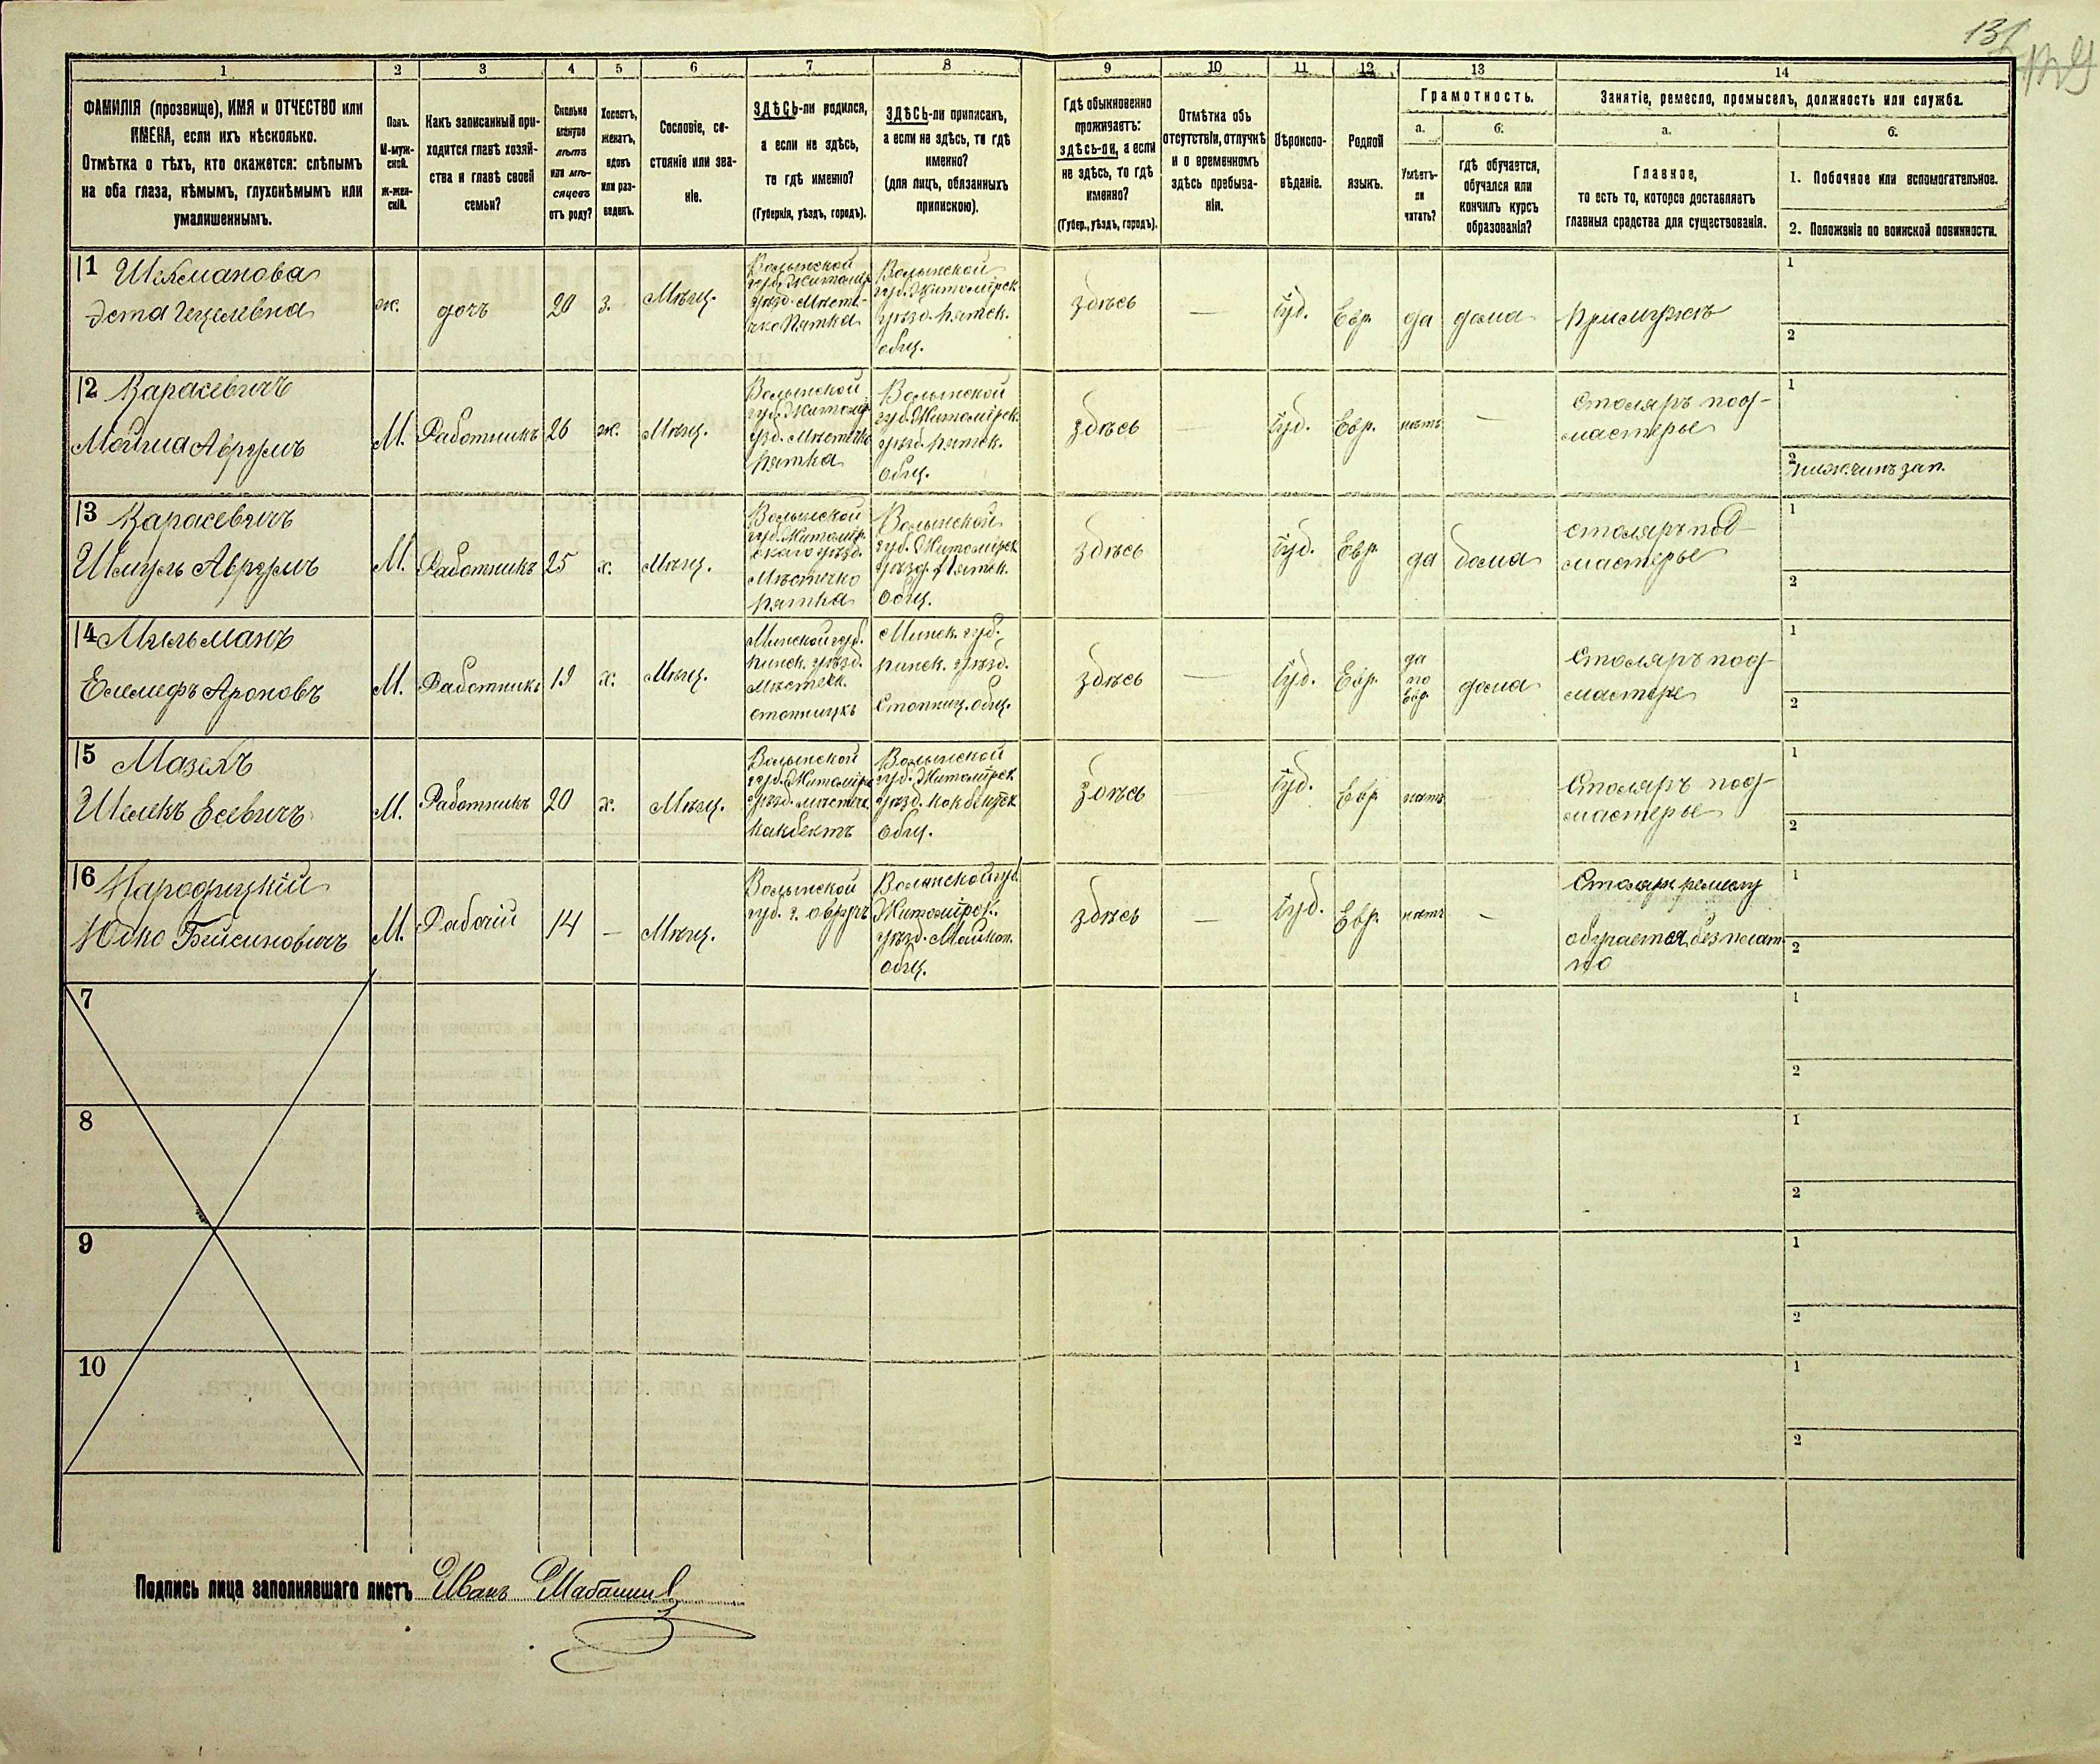 131
1
2
3
4
5
6
7
8
9
10
11
12
13
14
ФАМИЛІЯ (прозвище), ИМЯ и ОТЧЕСТВО или
ИМЕНА, если ихъ нѣсколько.
Отмѣтка о тѣхъ, кто окажется: слѣпымъ
на оба глаза, нѣмымъ, глухонѣмымъ или
умалишеннымъ.
Полъ.
М-муж-
ской.
Ж-жен-
скій.
Какъ записанный при-
ходится главѣ хозяй-
ства и главѣ своей
семьи?
Сколько
минуло
лѣтъ
или мѣ-
сяцевъ
отъ роду?
Холостъ,
женатъ,
вдовъ
или раз-
веденъ.
Сословіе, со-
стояніе или зва-
ніе.
ЗДѢСЬ-ли родился,
а если не здѣсь,
то гдѣ именно?
(Губернія, уѣздъ, городъ).
ЗДѢСЬ-ли приписанъ,
а если не здѣсь, то гдѣ
именно?
(для лицъ, обязанныхъ
припискою).
Гдѣ обыкновенно
проживаетъ:
здѣсь-ли, а если
не здѣсь, то гдѣ
именно?
(Губер., уѣздъ, городъ).
Отмѣтка объ
отсутствіи, отлучкѣ
и о временномъ
здѣсь пребыва-
ніи.
Вѣроиспо-
вѣданіе.
Родной
языкъ.
Грамотность.
а.
Умѣетъ-
ли
читать?
б.
гдѣ обучается,
обучался или
кончилъ курсъ
образованія?
Занятіе, ремесло, промыселъ, должность или служба.
а.
Главное,
то есть то, которое доставляетъ
главныя средства для существованія.
б.
1. Побочное или вспомогательное.
2. Положеніе по воинской повинности.
11
Эста Гецелевна
ж.
дочъ
20
з.
Мѣщ.
Волынской
губ. Житомір.
уѣзд. Мѣсте-
чко Пятка
Волынской
губ. Житомірск.
уѣзд. Пятск.
общ.
здѣсь
—
Іуд.
Евр.
да
дома
При мужѣ
1
2
12 Карасевичъ
Мойша Аврумъ
М.
Работникъ
26
ж.
Мѣщ.
Волынской
губ. Житомір.
узд. Мѣстечко
Пятка
Волынской
губ. Житомірск.
уѣзд. Пятск.
Общ.
здѣсь
—
Іуд.
Евр.
нѣтъ
—
Столяръ под-
мастерье
1
2
ниж. чинъ зап.
13 Карасевичъ
Шмуль Аврумъ
М.
Работникъ
25
х.
Мѣщ.
Волынской
губ. Житомір-
скаго уѣзд.
Мѣстечко
Пятка
Волынской
губ. Житомірск
уѣзд. Пятск.
Общ.
здѣсь
Іуд.
Евр.
да
дома
столяръ под-
мастерье
1
2
14
Ароновъ
М.
Работникъ
19
х.
Мѣщ.
Минской губ.
Пинск. уѣзд.
Минск. губ.
Пинск. уѣзд.
здѣсь
—
Іуд.
Евр.
да
по
Евр.
дома
Столяръ под-
мастерье
1
2
15 Мазехъ
М.
Работникъ
20
х.
Мѣщ.
Волынской
губ. Житомірск
уѣзд. мѣстеч.
Волынской
губ. Житомірск
уѣзд.
Общ.
здѣсь
—
Іуд.
Евр.
нѣтъ
—
Столяръ под-
мастерье
1
2
16 Народицкій
М.
Рабочій
14
—
Мѣщ.
Волынской
губ. г. Овручъ
Волынской губ.
Житомірск.
уѣзд.
общ.
здѣсь
—
Іуд.
Евр.
нѣтъ
—
Столярн. ремеслу
обучается безплат
но
1
2
7
1
2
8
1
2
9
1
2
10
1
2
Подпись лица заполнявшаго листъ Иванъ